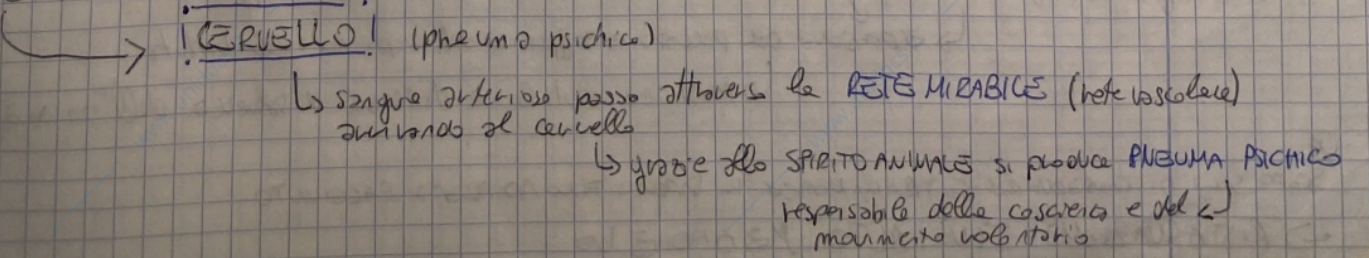 ¡CERVELLO! (pneuma psichico)
↳ sangue arterioso passa attraverso la RETE MIRABILE (rete vascolare)
arrivando al cervello
↳ grazie allo SPIRITO ANIMALE si produce PNEUMA PSICHICO
responsabile della coscienza e del
movimento volontario